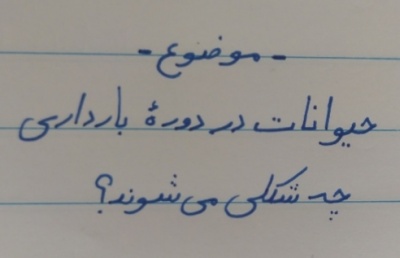 - موضوع -
حیوانات در دورهٔ بارداری
چه شکلی می‌شوند؟